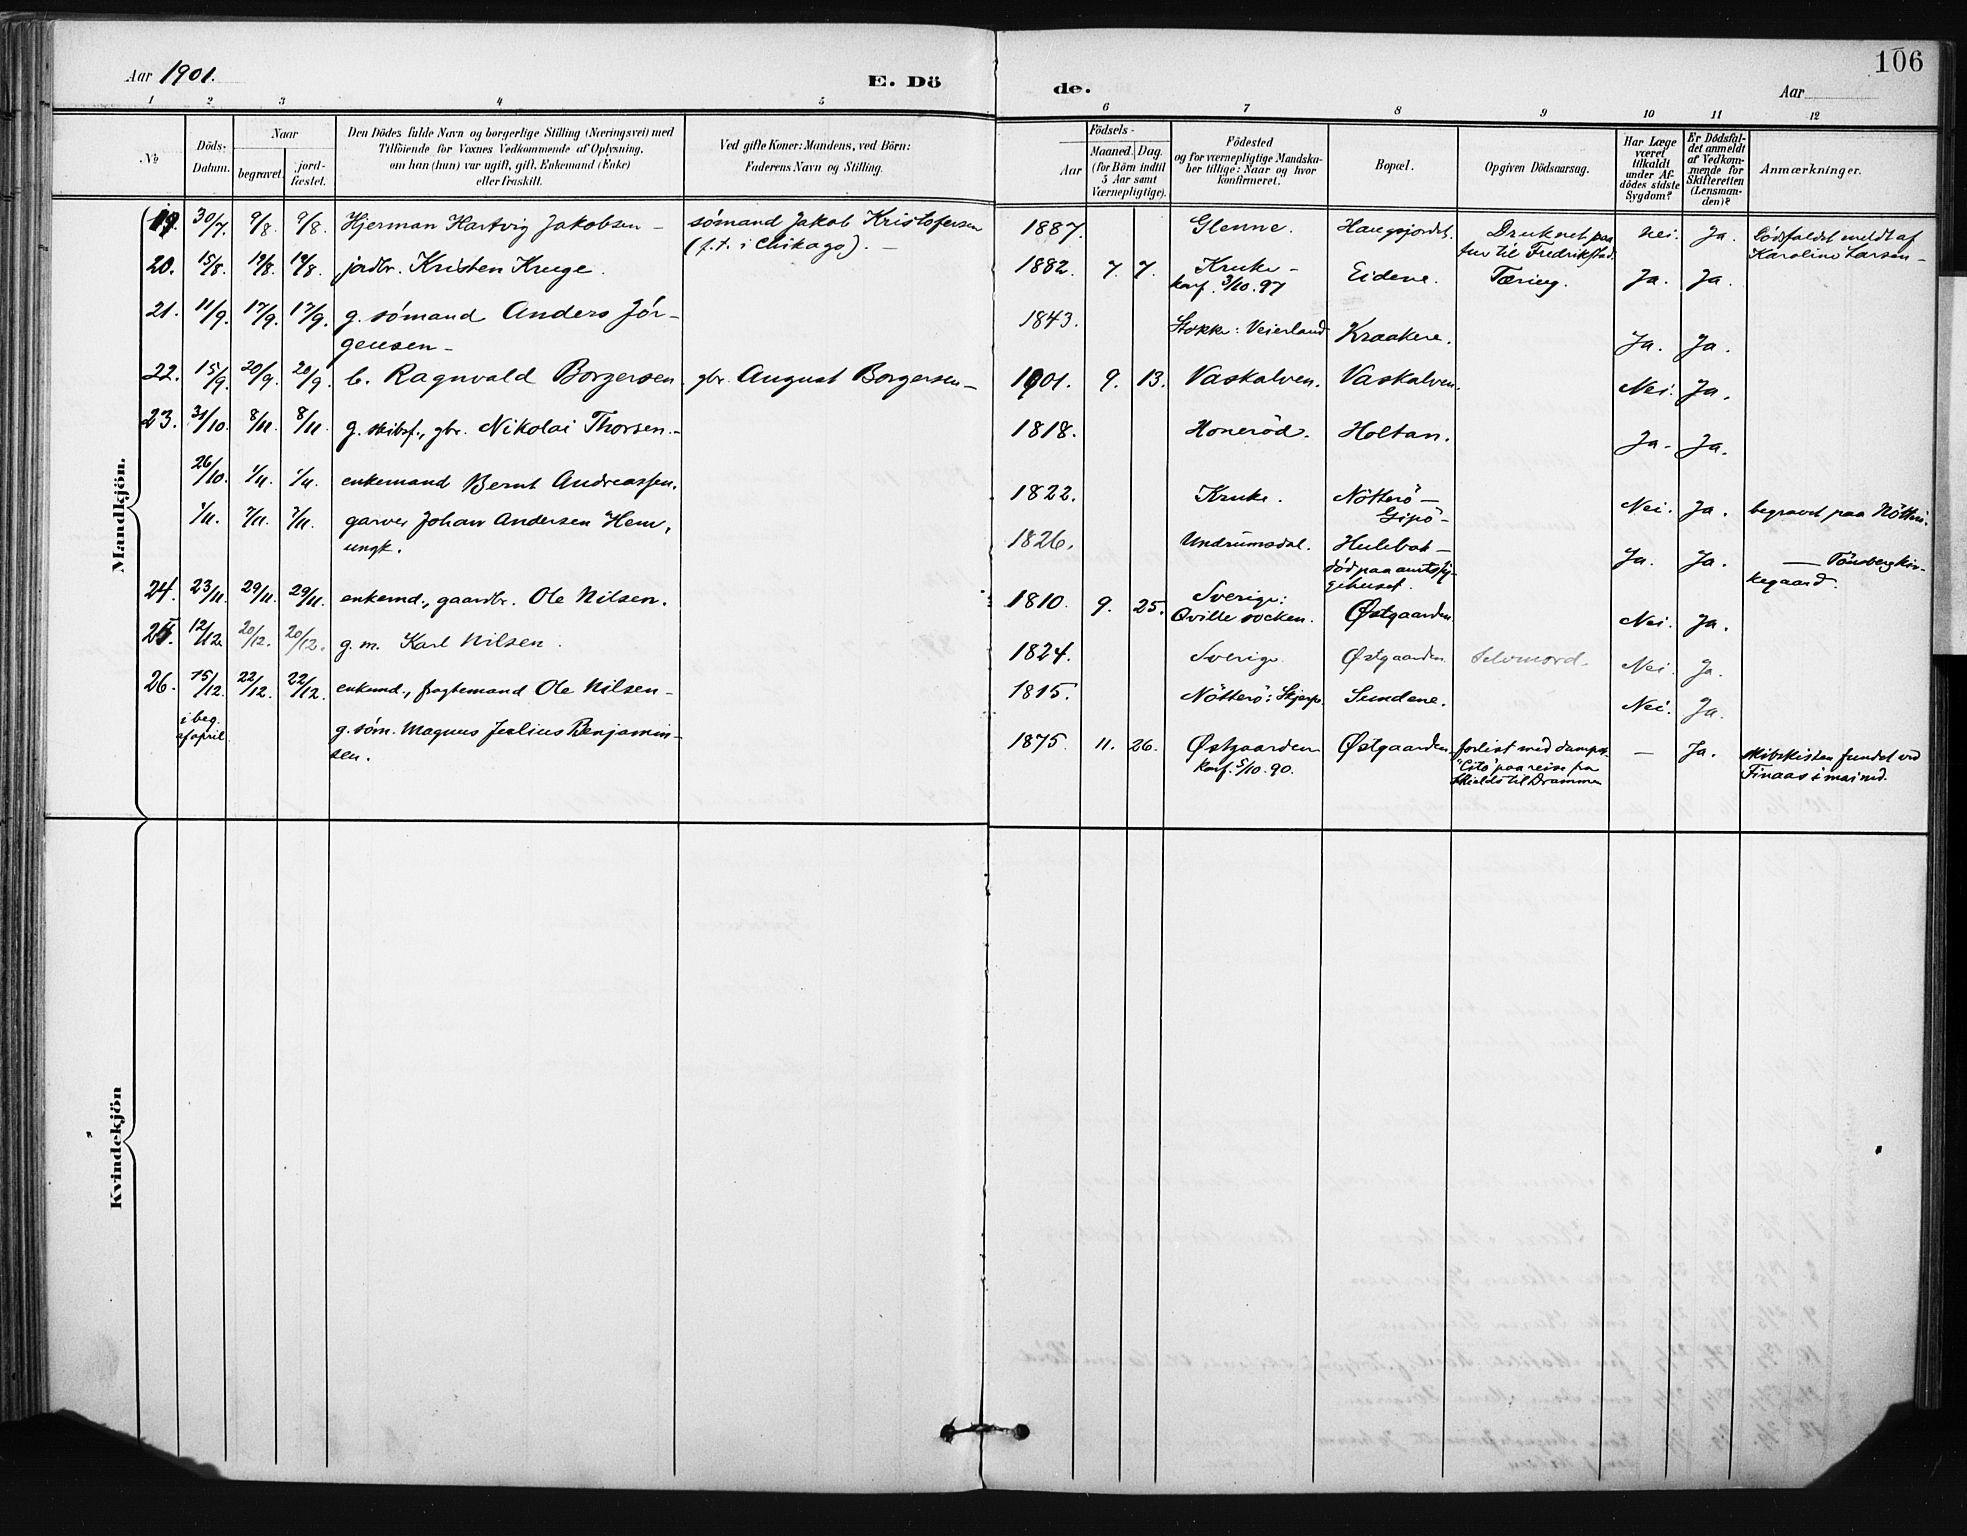 Aar 1901.
E. Dö
de.
Aar
106
1 2 3 4 5 6 7 8 9 10 11 12
№
Döds-
Datum.
Naar
begravet.
jord-
fæstet.
Den Dödes fulde Navn og borgerlige Stilling (Næringsvei) med
Tilföiende for Voxnes Vedkommende af Oplysning,
om han (hun) var ugift, gift, Enkemand (Enke)
eller fraskilt.
Ved gifte Koner: Mandens, ved Börn:
Faderens Navn og Stilling.
Födsels-
Aar
Maaned. Dag.
(for Börn indtil
5 Aar samt
Værnepligtige).
Födested
og for værnepligtige Mandska-
ber tillige: Naar og hvor
konfirmeret.
Bopæl.
Opgiven Dödsaarsag.
Har Læge
været
tilkaldt
under Af-
dödes sidste
Sygdom?
Er Dödsfal-
det anmeldt
af Vedkom-
mende for
Skifteretten
(Lensman-
den)?
Anmærkninger.
Mandkjön.
19. 30/7. 9/8. 9/8. Hjerman Hartvig Jakobsen – sømand Jakob Kristofersen
(f.t. i Chikago). –
1887. Glenne. Haugsjordet. Druknet paa
tur til Fredrikstad. Nei. Ja. Dödsfaldet meldt af
Karoline Larsen –
20. 15/8. 19/8. 19/8. jordbr. Kristen Kruge. 1882. 7. 7. Kruke –
konf. 3/10. 97 Eidene. Tæring. Ja. Ja.
21. 11/9. 17/9. 17/9. g. sømand Anders Jör-
gensen – 1843. Stokke: Veierland Kraakere. Ja. Ja.
22. 15/9. 20/9. 20/9. b. Ragnvald Borgersen gbr. August Borgersen – 1901. 9. 13. Vaskalven. Vaskalven. Nei. Ja.
23. 31/10. 8/11. 8/11. g. skibsf., gbr. Nikolai Thorsen. – 1818. Honeröd. Holtan. Ja. Ja.
26/10. 1/11. 1/11. enkemand Bernt Andreassen. 1822. Kruke. Nötterö –
Gipö – Nei. Ja. begravet paa Nötterö.
1/11. 7/11. 7/11. garver Johan Andersen Hem,
ungk. 1826. Undrumsdal. Hulebak –
död paa amtssy-
gehuset. Ja. Ja. — Tönsberg kir-
kegaard.
24. 23/11. 29/11. 29/11. enkemd., gaardbr. Ole Nilsen. 1810. 9. 25. Sverige:
Qville socken. Østgaarden. Nei. Ja.
25. 12/12. 20/12. 20/12. g. m. Karl Nilsen. 1824. Sverige Østgaarden Selvmord. Nei. Ja.
26. 15/12. 22/12. 22/12. enkemd., fragtemand Ole Nilsen – 1815. Nötterö: Skjerp. Sundene. Nei. Ja.
i beg.
af april. g. söm. Magnus Julius Benjamin-
sen. 1875. 11. 26. Østgaarden
Konf. 5/10. 90. Østgaarden. forlist med dampsk.
"Cito" paa reise fra
Shields til Drammen – Ja. skibskisten fundet ved
Finaas i mai md.
Kvindekjön